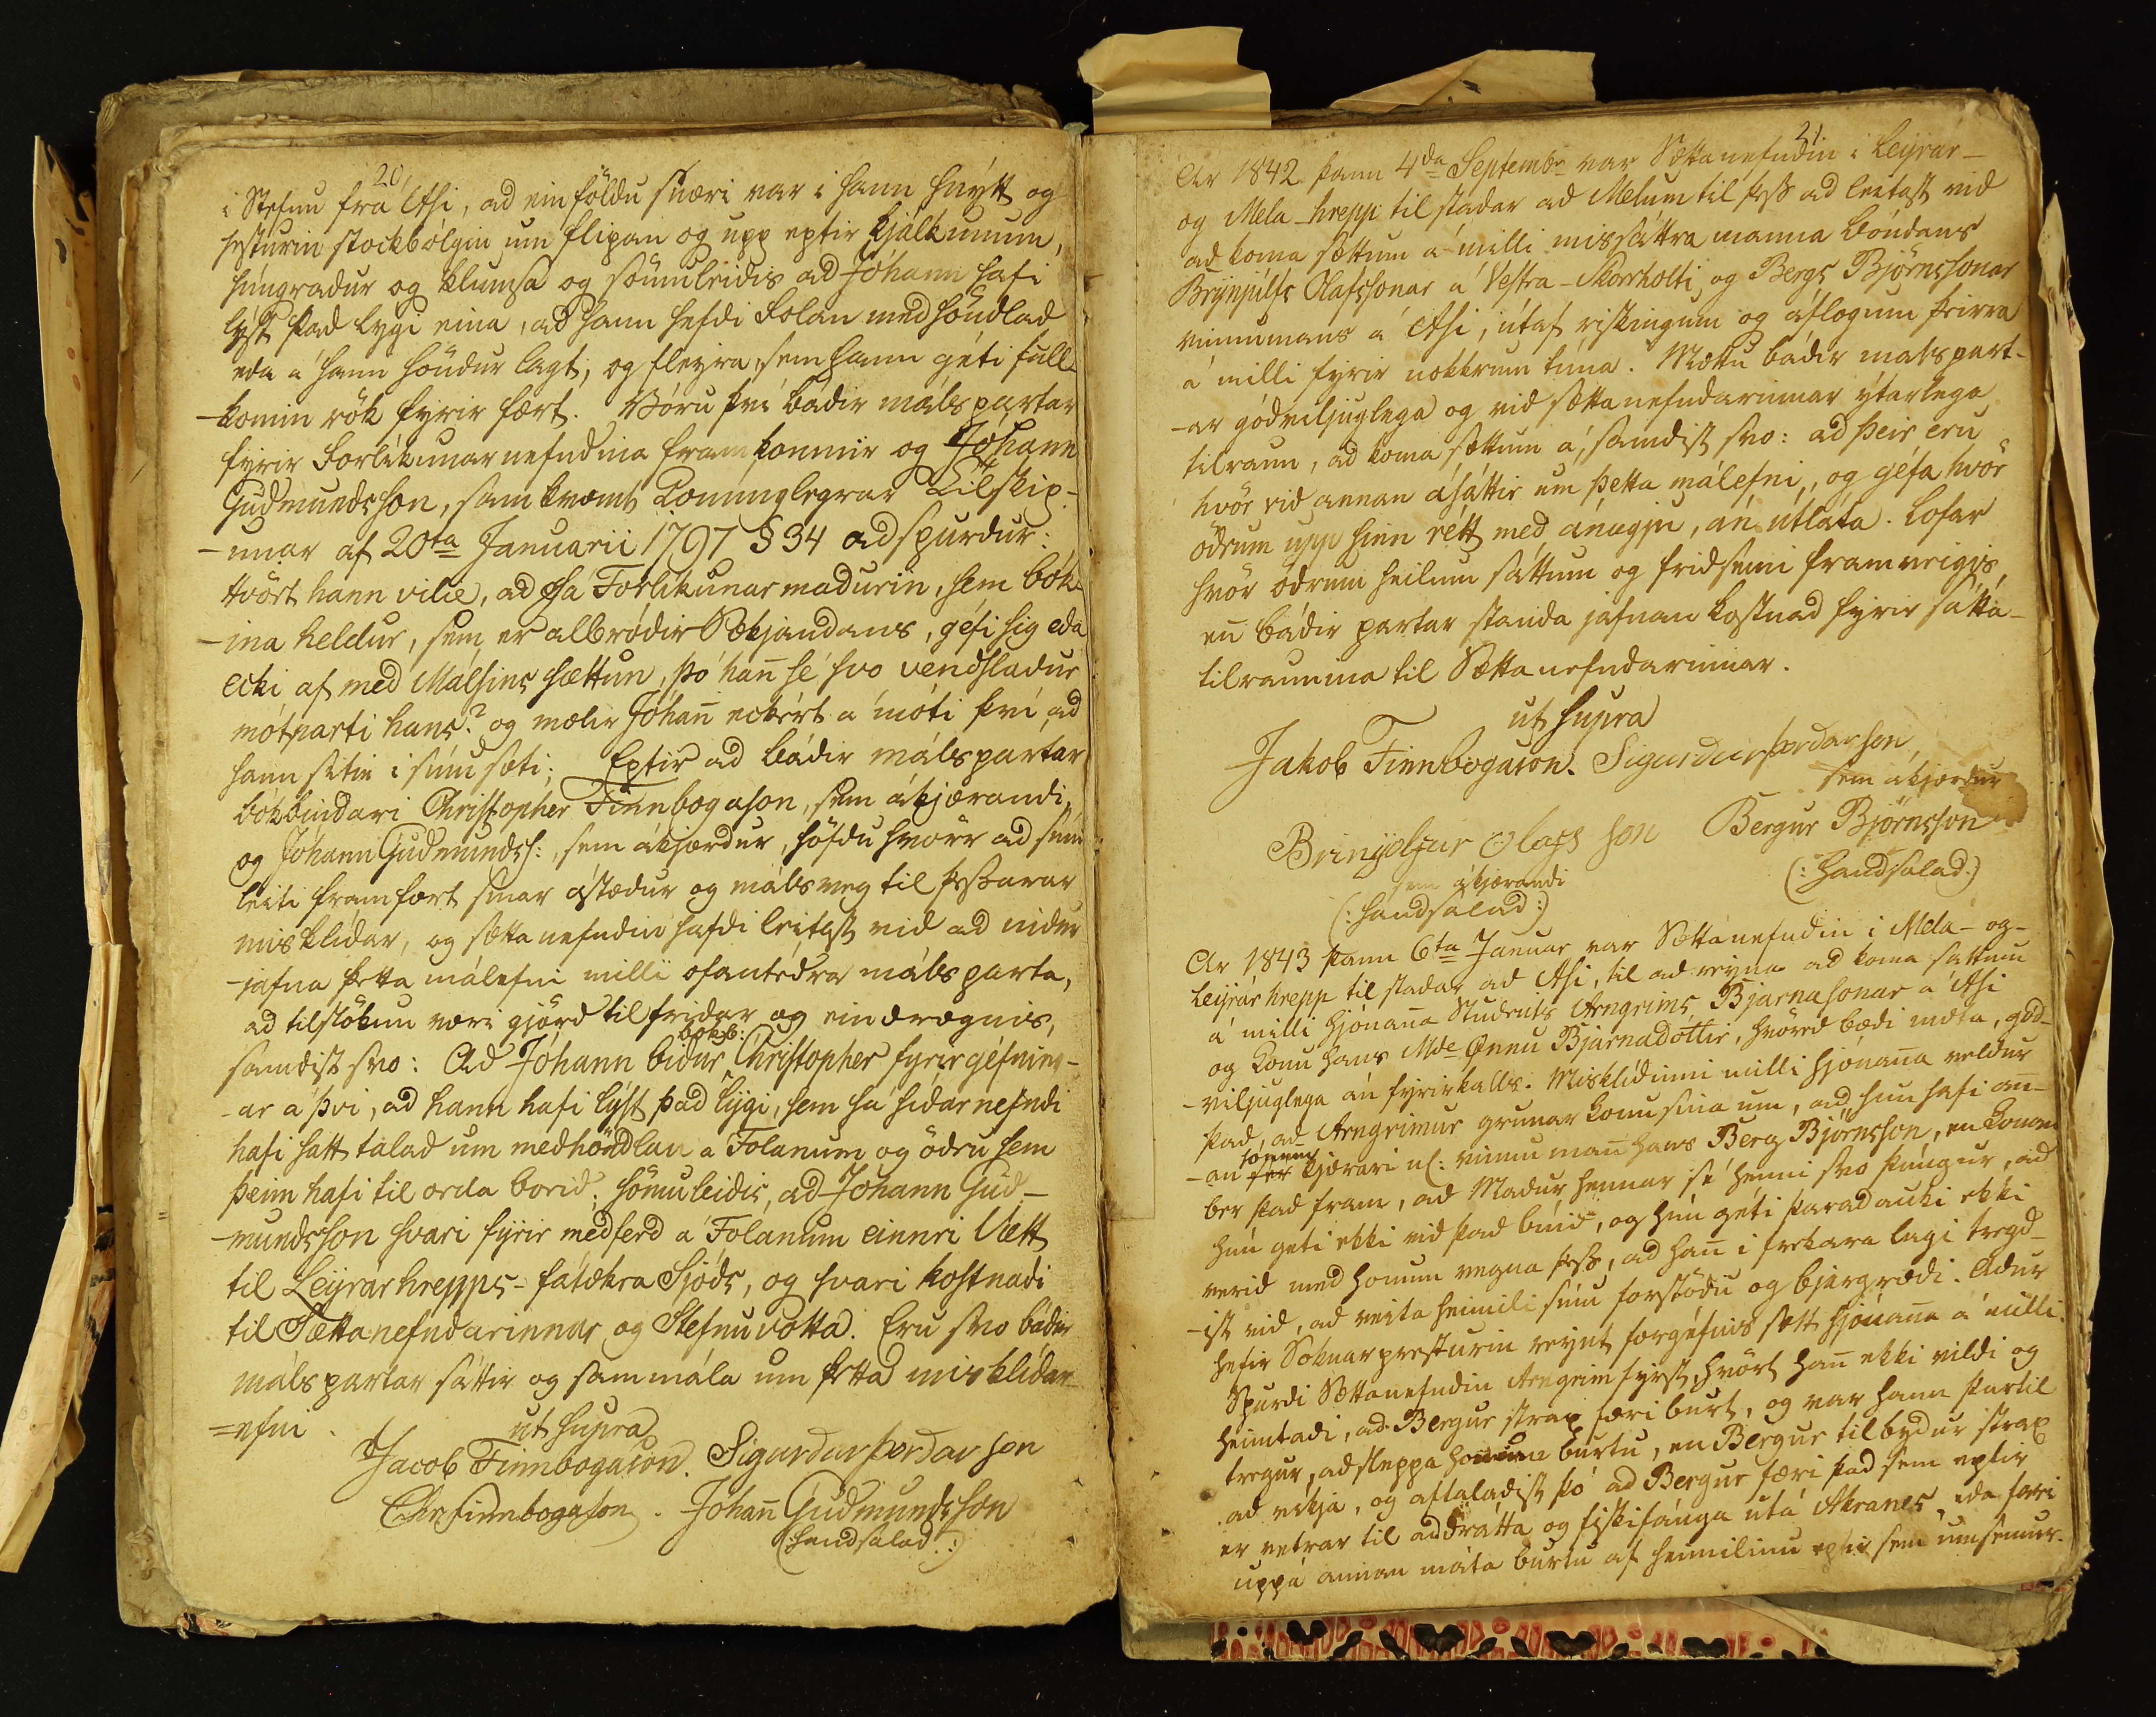 20,
i Stefnu frá Ási, ad einföldu snæri var i hann hnýtt og
hesturin stockbólgin um flipan og upp eptir kjálkunum,
húngradur og klumsa og sömuleidis ad Jóhann hafi
lýst þad lygi eina, ad hann hefdi Folan medhöndlad
eda á hann höndur lagt, og fleyra, sem hann géti full-
-komin rök fyrir fært. Vóru því bádir málspartar
fyrir Forlíkunarnefndina framkomnir og Jóhann
Gudmundsson, samkvæmt Konunglegrar Tilskip-
-unar af 20ta Januarii 1797 § 34 adspurdur:
hvört hann vilie, ad sá Forlikunarmadurin, sem bók-
-ina heldur, sem er albródir Sækjandans, géfi sig eda
ecki af med Málsins sættun, þó hann sé svo vendsladur
mótparti hans? og mælir Jóhann eckért á móti því, ad
hann sitie i sínu sæti; Eptir ad bádir málspartar
bókbindari Christopher Finnbogason, sem ákjærandi,
og Jóhann Gudmundss:, sem ákjærdur, höfdu hvörr ad sínu
leiti framfært sínar ástædur og málsveg til þessarar
misklídar, og sættanefndin hafdi leitast vid ad nidur
-jafna þetta málefni milli ofantédra málsparta,
ad tilslökun væri gjörd til fridar og eindrægnis,
bókb:
samdist svo: Ad Jóhann bidur Christopher fyrirgéfning-
-ar á því, ad hann hafi lýst þad lýgi, sem sá sídarnefndi
hafi satt talad um medhöndlan á Folanum og ödru sem
þeim hafi til orda borid. sömuleidis, ad Jóhann Gud-
-mundsson svari fyrir medferd á Folanum einnri Vætt
til Leyrárhrepps-fátækra Sjóds, og svari kostnadi
til Sættanefndarinnar og Stefnuvotta. Eru svo bádir
málspartar sáttir og sammála um þetta misklídar-
=efni. ut supra
Jacob Finnbogason. Sigurdur þordarson
Chr Finnbogason. Johann Gudmundsson
(handsalad:)
21
Ar 1842 þann 4da Septembr var Sættanefndin i Leyrár-
og Mela-hrepp til stadar ad Melum til þess ad leitast vid
ad koma sættum á milli missáttra manna bóndans
Brynjúlfs Olafssonar á Vestra-Skorrholti, og Bergs Björnssonar
vinnumans á Ási, útaf riskingum og áflogum þeirra
á milli fyrir nokkrum tíma. Mættu bádir málspart-
-ar gódviljuglega og vid sættanefndarinnar ýtarlega
tilraun, ad koma sættum á, samdist svo: ad þeir eru
hvör vid annan ásáttir um þetta málefni, og géfa hvör
ödrum upp sinn rétt med ánægju, án útláta. Lofar
hvör ödrum heilum sáttum og fridsemi framveigis,
en bádir partar standa jafnan kostnad fyrir sátta-
tilraunina til Sættanefndarinnar.
ut supra
Jakob Finnbogason. Sigurdur þordarson
sem ákjærdur
Brinjolfur Olafs son Bergur Björnsson
sem ákjærandi (: handsalad:)
(: handsalad:)
Ar 1843 þann 6ta Januar var Sættanefndin i Mela- og-
Leyrárhrepp til stadar ad Ási, til ad reyna ad koma sáttum
á milli hjónanna Students Arngrims Bjarnasonar á Ási
og Konu hans Mde Önnu Bjarnadottir, hvörrd bædi mæta, gód-
-viljuglega án fyrirkalls. Misklídinni milli hjónanna veldur
þad, ad Arngrimur grunar konu sína um, ad hun hafi ann-
honum
-an fer kjærari nl: vinnumann hans Berg Björnsson, en konan
ber þad fram, ad Madur hennar sé henni svo þúngur, ad
hún geti ekki vid þad búid, og hún géti þaradauki ekki
verid med honum vegna þess, ad hann i frekara lagi tregd-
-ist vid, ad veita heimili sínu forstödu og bjargrædi. Adur
hefir Soknarpresturin reynt forgéfins sætt hjónanna á milli.
Spurdi Sættanefndin Arngrim fyrst, hvört hann ekki vildi og
heimtadi, ad Bergur strax færi burt, og var hann þartil
tregur, ad sleppa honum burtu, en Bergur tilbydur strax
ad víkja, og aftaladist þó ad Bergur færi þad sem eptir
er vetrar til addrátta og fiskifánga utá Akranes, eda færi
uppá annan máta burtu af heimilinu eptir sem umsemur.